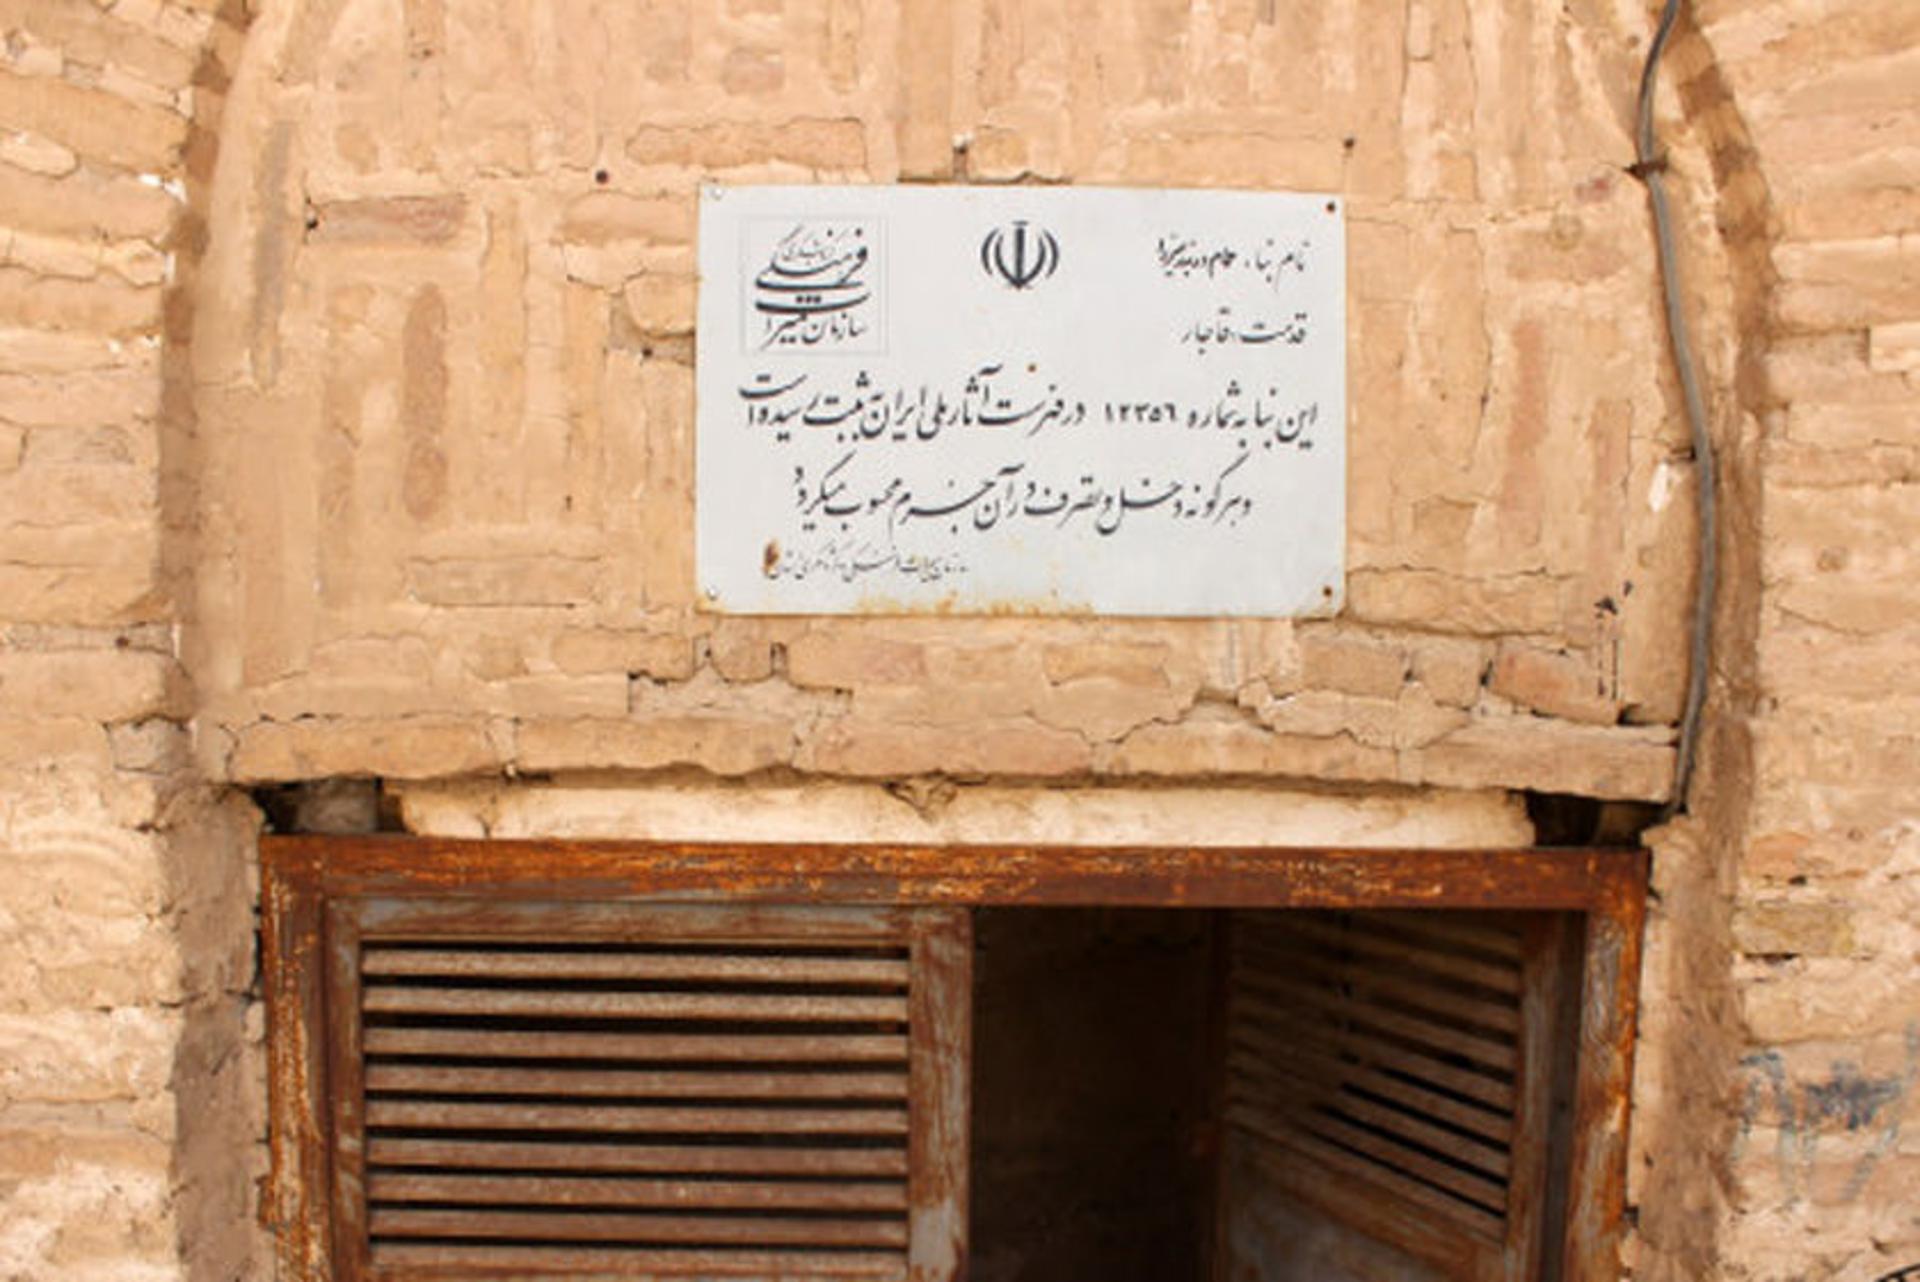 نام بنا: حمام دربند یزد
قدمت: قاجار
سازمان میراث فرهنگی و گردشگری
این بنا به شماره ۱۲۳۵۶ در فهرست آثار ملی ایران به ثبت رسیده است
و هرگونه دخل و تصرف در آن جرم محسوب میگردد
سازمان میراث فرهنگی و گردشگری استان